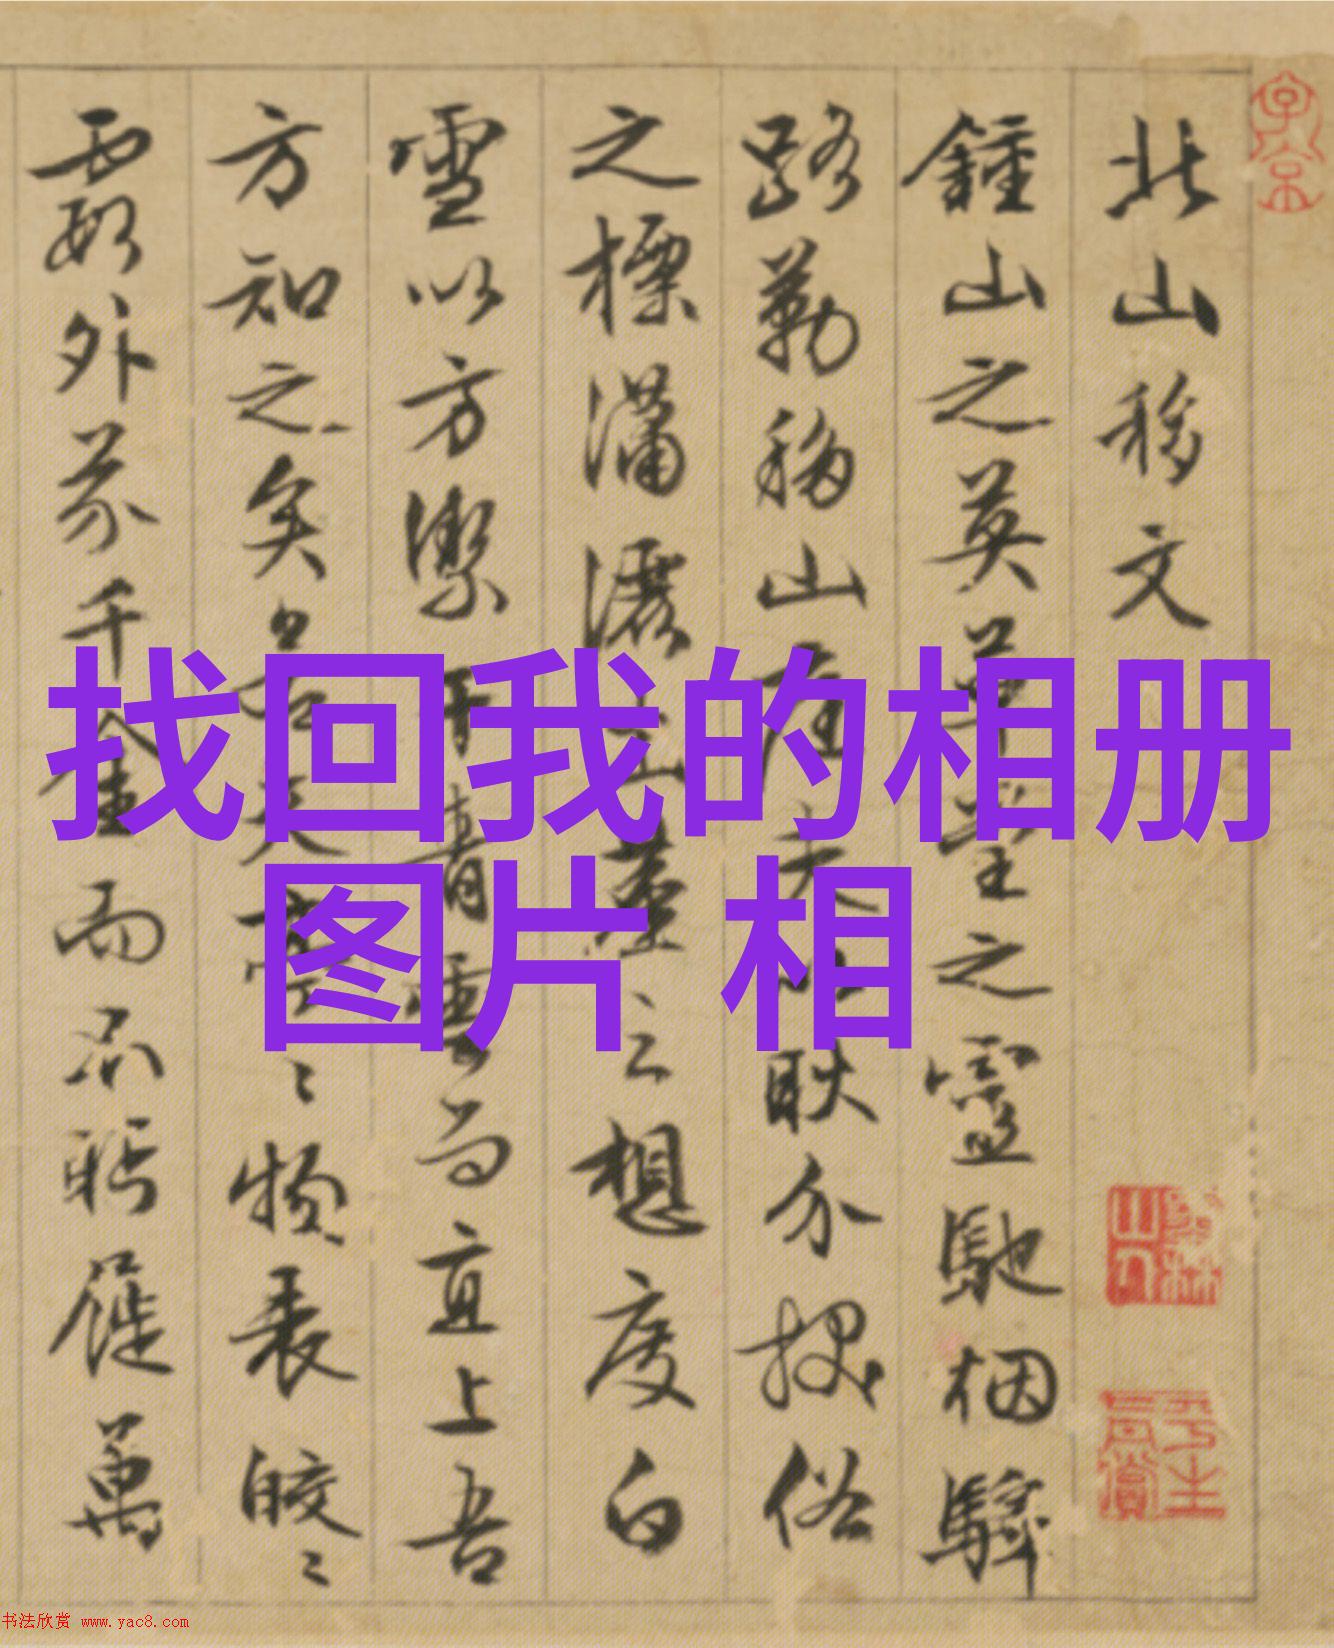 找回我的相册
图片 相
北山移文
鍾山之英草堂之靈馳烟驛
路勒移山庭夫以耿介拔俗
之標瀟灑出塵之想度白
雪以方潔干青雲而直上吾
方知之矣物表皎〻
霞外芥千金而不眄屣萬
子京
墨林山人
平生真賞
书法欣赏 www.yac8.com